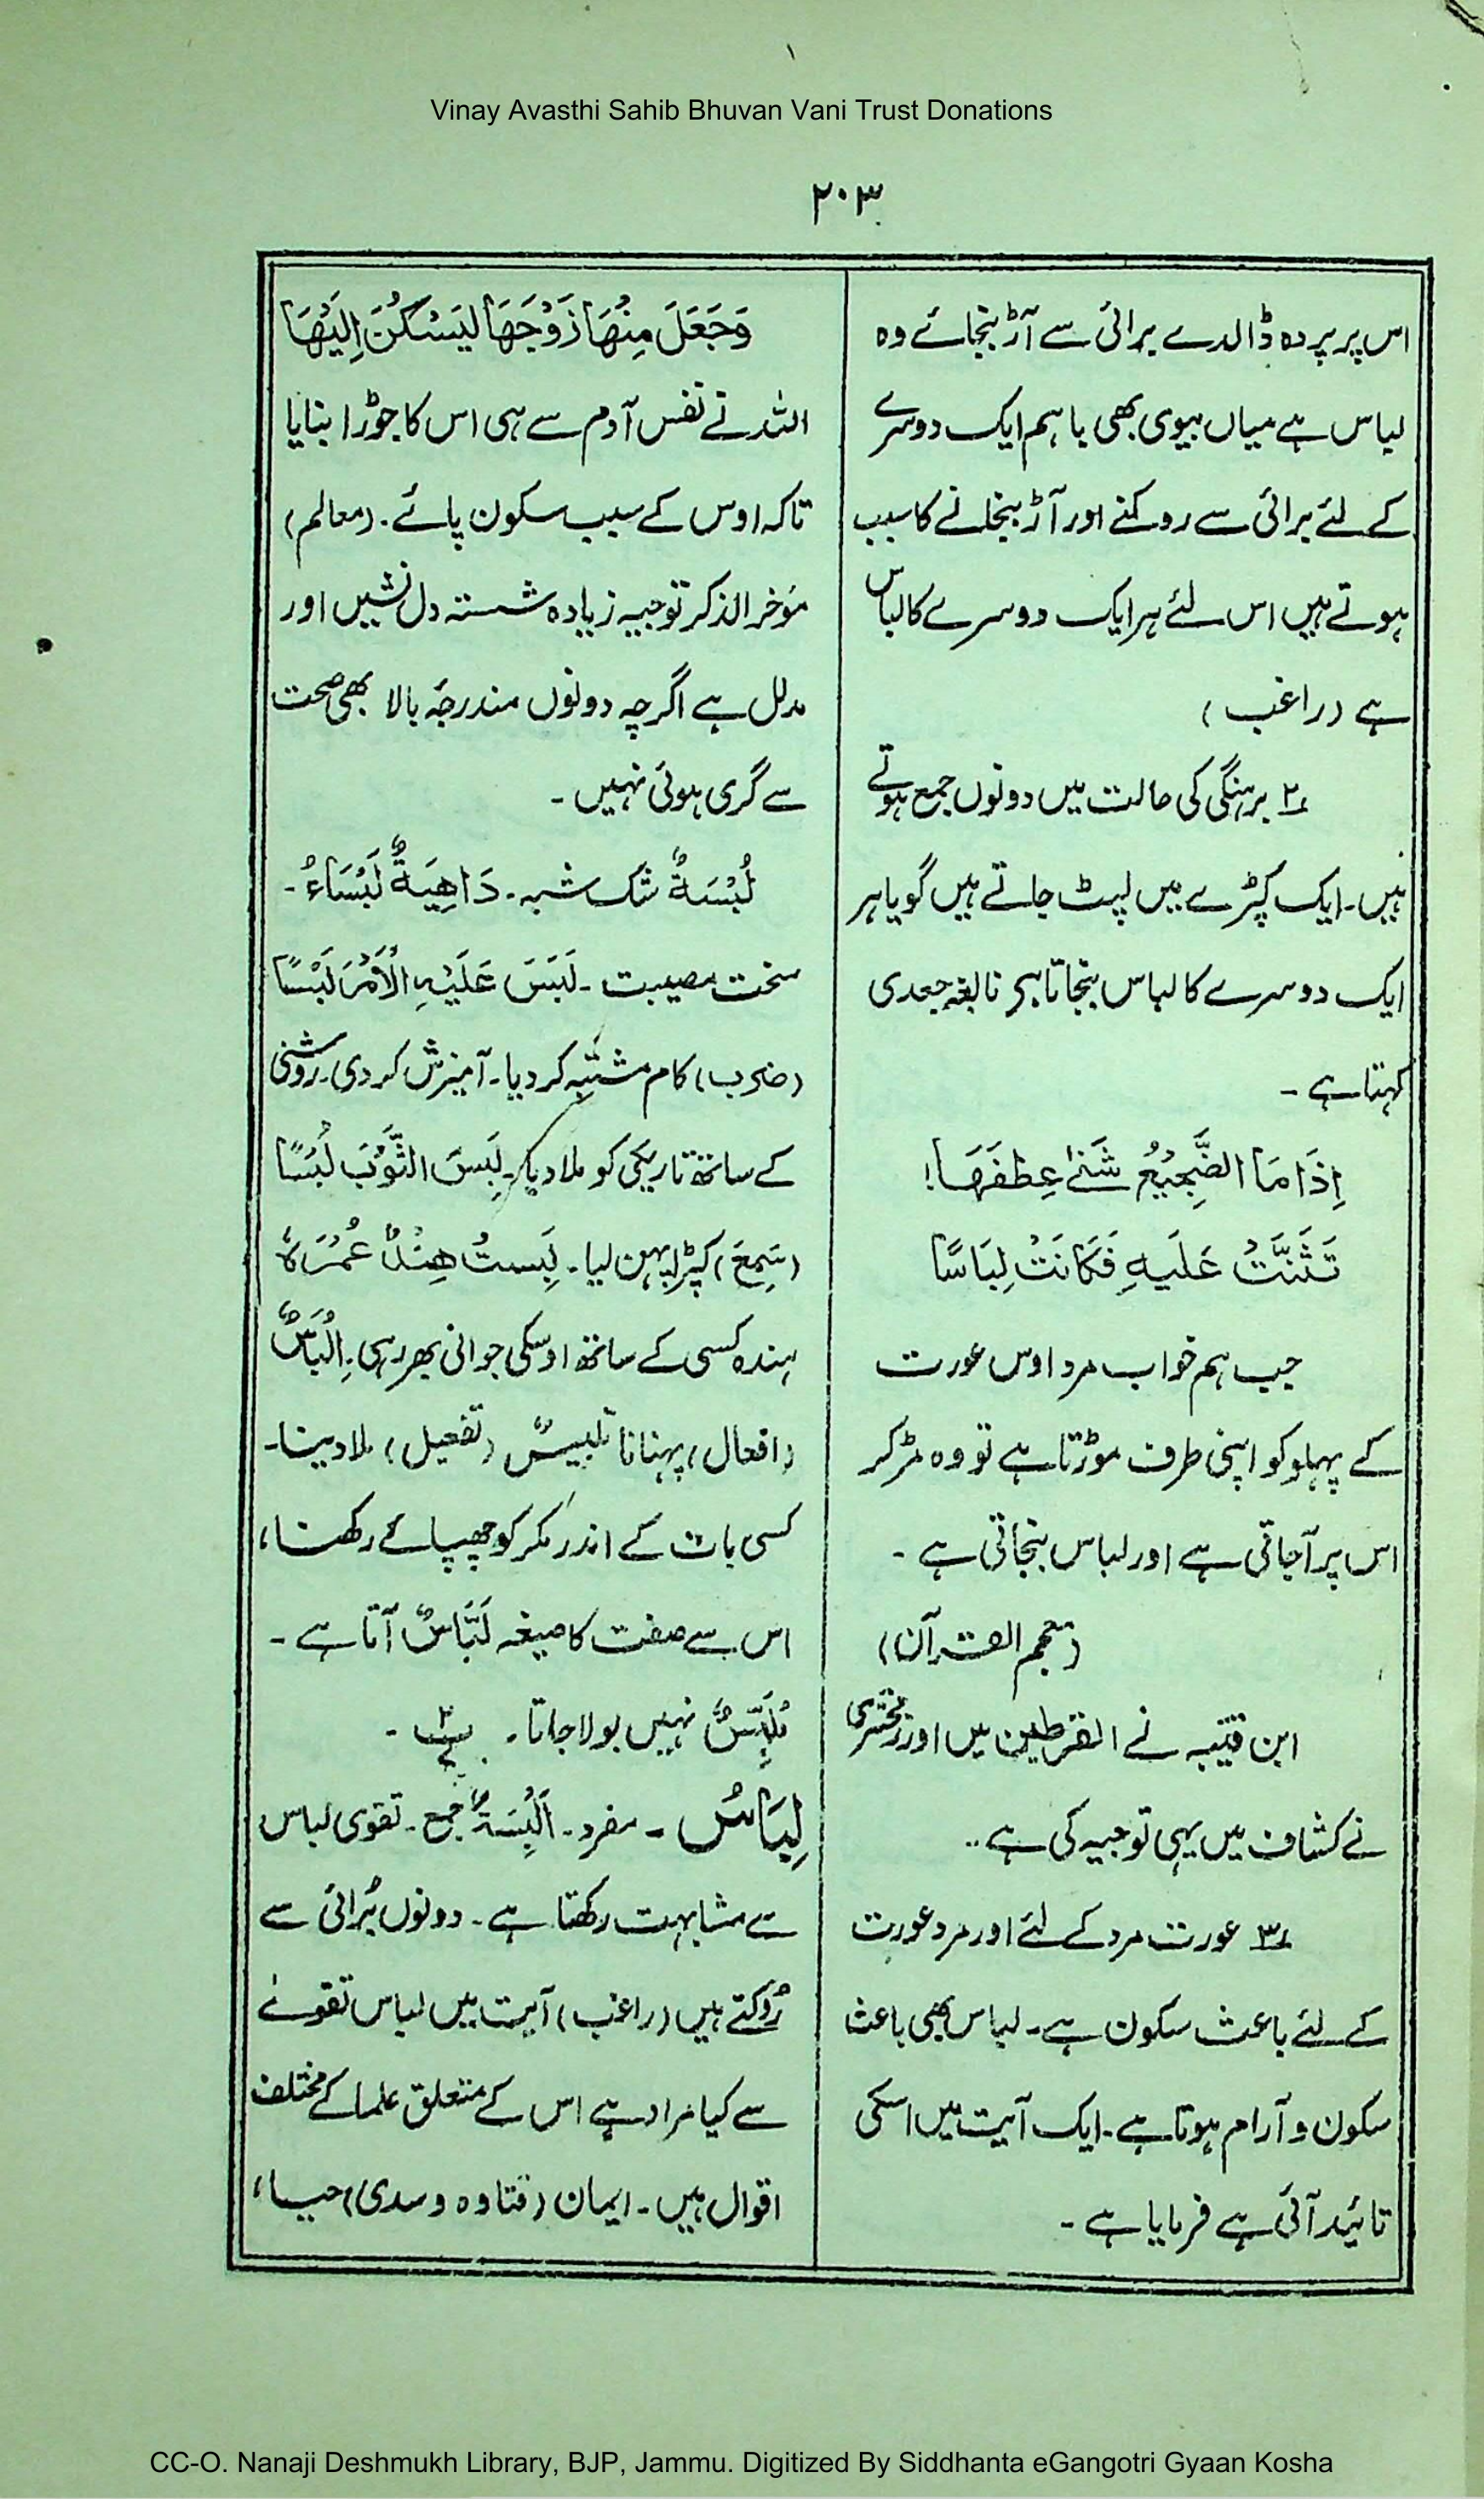 Vinay Avasthi Sahib Bhuvan Vani Trust Donations
۲۰۳
اس پر پردہ ڈالدے برائی سے آڑ بنجائے وہ
لباس ہے میاں بیوی بھی باہم ایک دوسرے
کے لئے برائی سے روکنے اور آڑ بنجانے کا سبب
ہوتے ہیں اس لئے ہر ایک دوسرے کا لباس
ہے (راغب)
۲؎ برہنگی کی حالت میں دونوں جمع ہوتے
ہیں۔ ایک کپڑے میں لپٹ جاتے ہیں گویا ہر
ایک دوسرے کا لباس بنجاتا ہے نابغہ جعدی
کہتا ہے ۔
اِذَا مَا الضَّجِيْعُ شَنٰى عِطْفَهَا!
تَثَنَّتْ عَلَيهِ فَكَانَتْ لِبَاسًا
جب ہم خواب مرد اوس عورت
کے پہلو کو اپنی طرف موڑتا ہے تو وہ مڑ کر
اس پر آجاتی ہے اور لباس بنجاتی ہے ۔
(معجم القرآن)
ابن قتیبہ نے القرطین میں اور زمخشری
نے کشاف میں یہی توجیہ کی ہے ۔۔
۳؎ عورت مرد کے لئے اور مرد عورت
کے لئے باعث سکون ہے۔ لباس بھی باعث
سکون و آرام ہوتا ہے۔ ایک آیت میں اسکی
تائید آئی ہے فرمایا ہے ۔
وَجَعَلَ مِنْهَا زَوْجَهَا لِيَسْكُنَ اِلَيْهَا
اللہ نے نفس آدم سے ہی اس کا جوڑا بنایا
تاکہ اوس کے سبب سکون پائے۔ (معالم)
مؤخر الذکر توجیہ زیادہ شستہ دل نشیں اور
مدلل ہے اگرچہ دونوں مندرجۂ بالا بھی صحت
سے گری ہوئی نہیں ۔
لُبْسَةٌ شک شبہ۔ دَاهِيَةٌ لَبْسَاءُ ۔
سخت مصیبت ۔ لَبَسَ عَلَيْهِ الْاَمْرَ لَبْسًا
(ضرب) کام مشتبہ کر دیا۔ آمیزش کر دی۔ روشنی
کے ساتھ تاریکی کو ملا دیا۔ لَبِسَ الثَّوْبَ لُبْسًا
(سَمِعَ) کپڑا پہن لیا۔ لَبِسَتْ هِنْدٌ عُمُرَهٗ
ہندہ کسی کے ساتھ اوسکی جوانی بھر رہی۔ اِلْبَاسٌ
(افعال) پہنانا تلبیسٌ (تفعیل) ملا دینا۔
کسی بات کے اندر مکر کو چھپائے رکھنا،
اس سے صفت کا صیغہ لَبَّاسٌ آتا ہے ۔
مُلَبِّسٌ نہیں بولا جاتا ۔
لِبَاسُ ۔ مفرد۔ اَلْبِسَةٌ جمع۔ تقوی لباس
سے مشابہت رکھتا ہے۔ دونوں بُرائی سے
رُوکتے ہیں (راغب) آیت میں لباس تقوےٰ
سے کیا مراد ہے اس کے متعلق علما کے مختلف
اقوال ہیں۔ ایمان (قتادہ و سدی) حیاء،
CC-O. Nanaji Deshmukh Library, BJP, Jammu. Digitized By Siddhanta eGangotri Gyaan Kosha